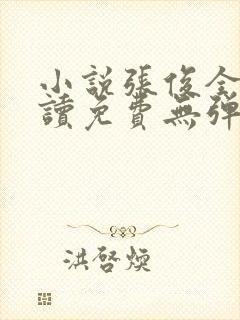 小說張俊全
讀免費無彈
洪啓煥